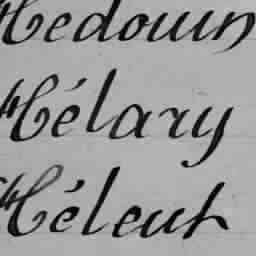 Hédouin
Hélary
Héleut